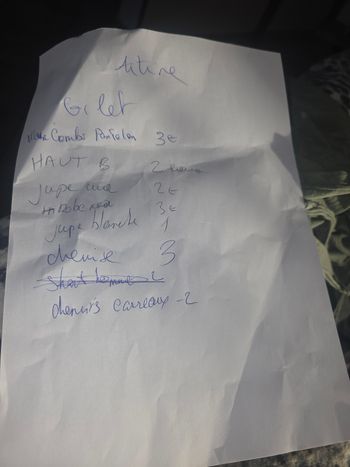 titine
Gilet
Combi Pantalon 3€
HAUT B 2
jupe 2€
3€
jupe blanche 1
chemise 3
short homme 2
chemis carreaux - 2